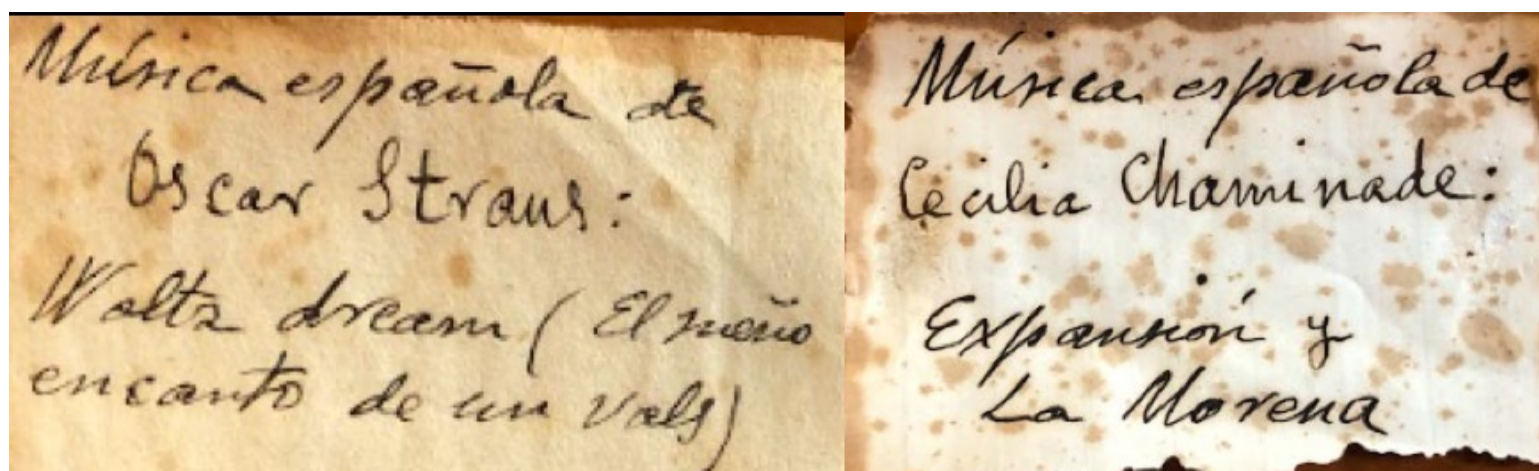 Música española de
Oscar Straus:
Waltz dream (El sueño
encanto de un vals)
Música española de
Cecilia Chaminade:
Expansión y
La Morena